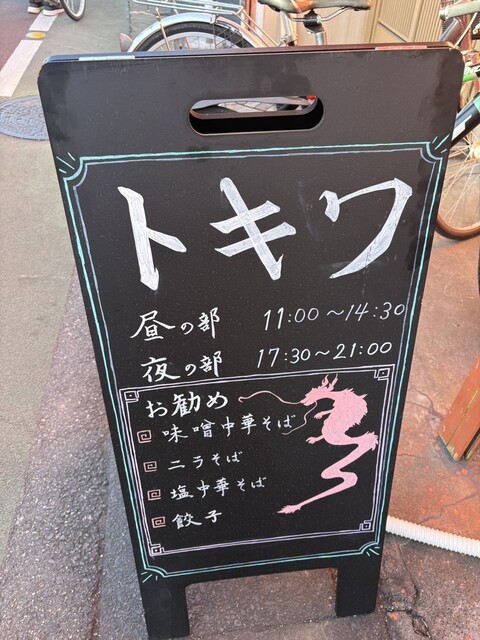 トキワ
昼の部 11:00～14:30
夜の部 17:30～21:00
お勧め
味噌中華そば
ニラそば
塩中華そば
餃子